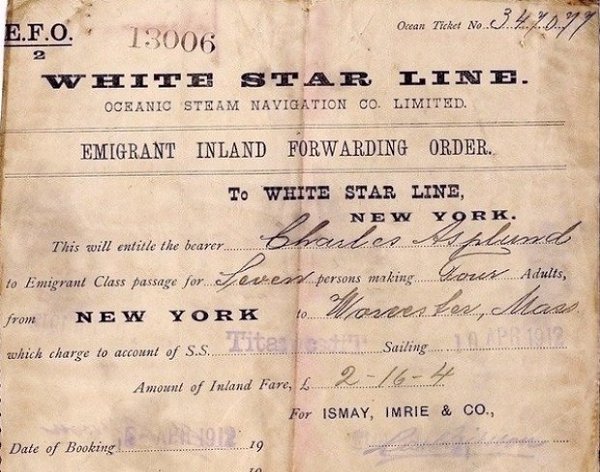 E.F.O. 13006 Ocean Ticket No. 347077
2
WHITE STAR LINE.
OCEANIC STEAM NAVIGATION CO. LIMITED.
EMIGRANT INLAND FORWARDING ORDER.
To WHITE STAR LINE,
NEW YORK.
This will entitle the bearer Charles Asplund
to Emigrant Class passage for Seven persons making Four Adults,
from NEW YORK to Worcester, Mass
which charge to account of S.S. Titanic Sailing 10 APR 1912
Amount of Inland Fare, £ 2-16-4
For ISMAY, IMRIE & CO.,
Date of Booking APR 1912 19